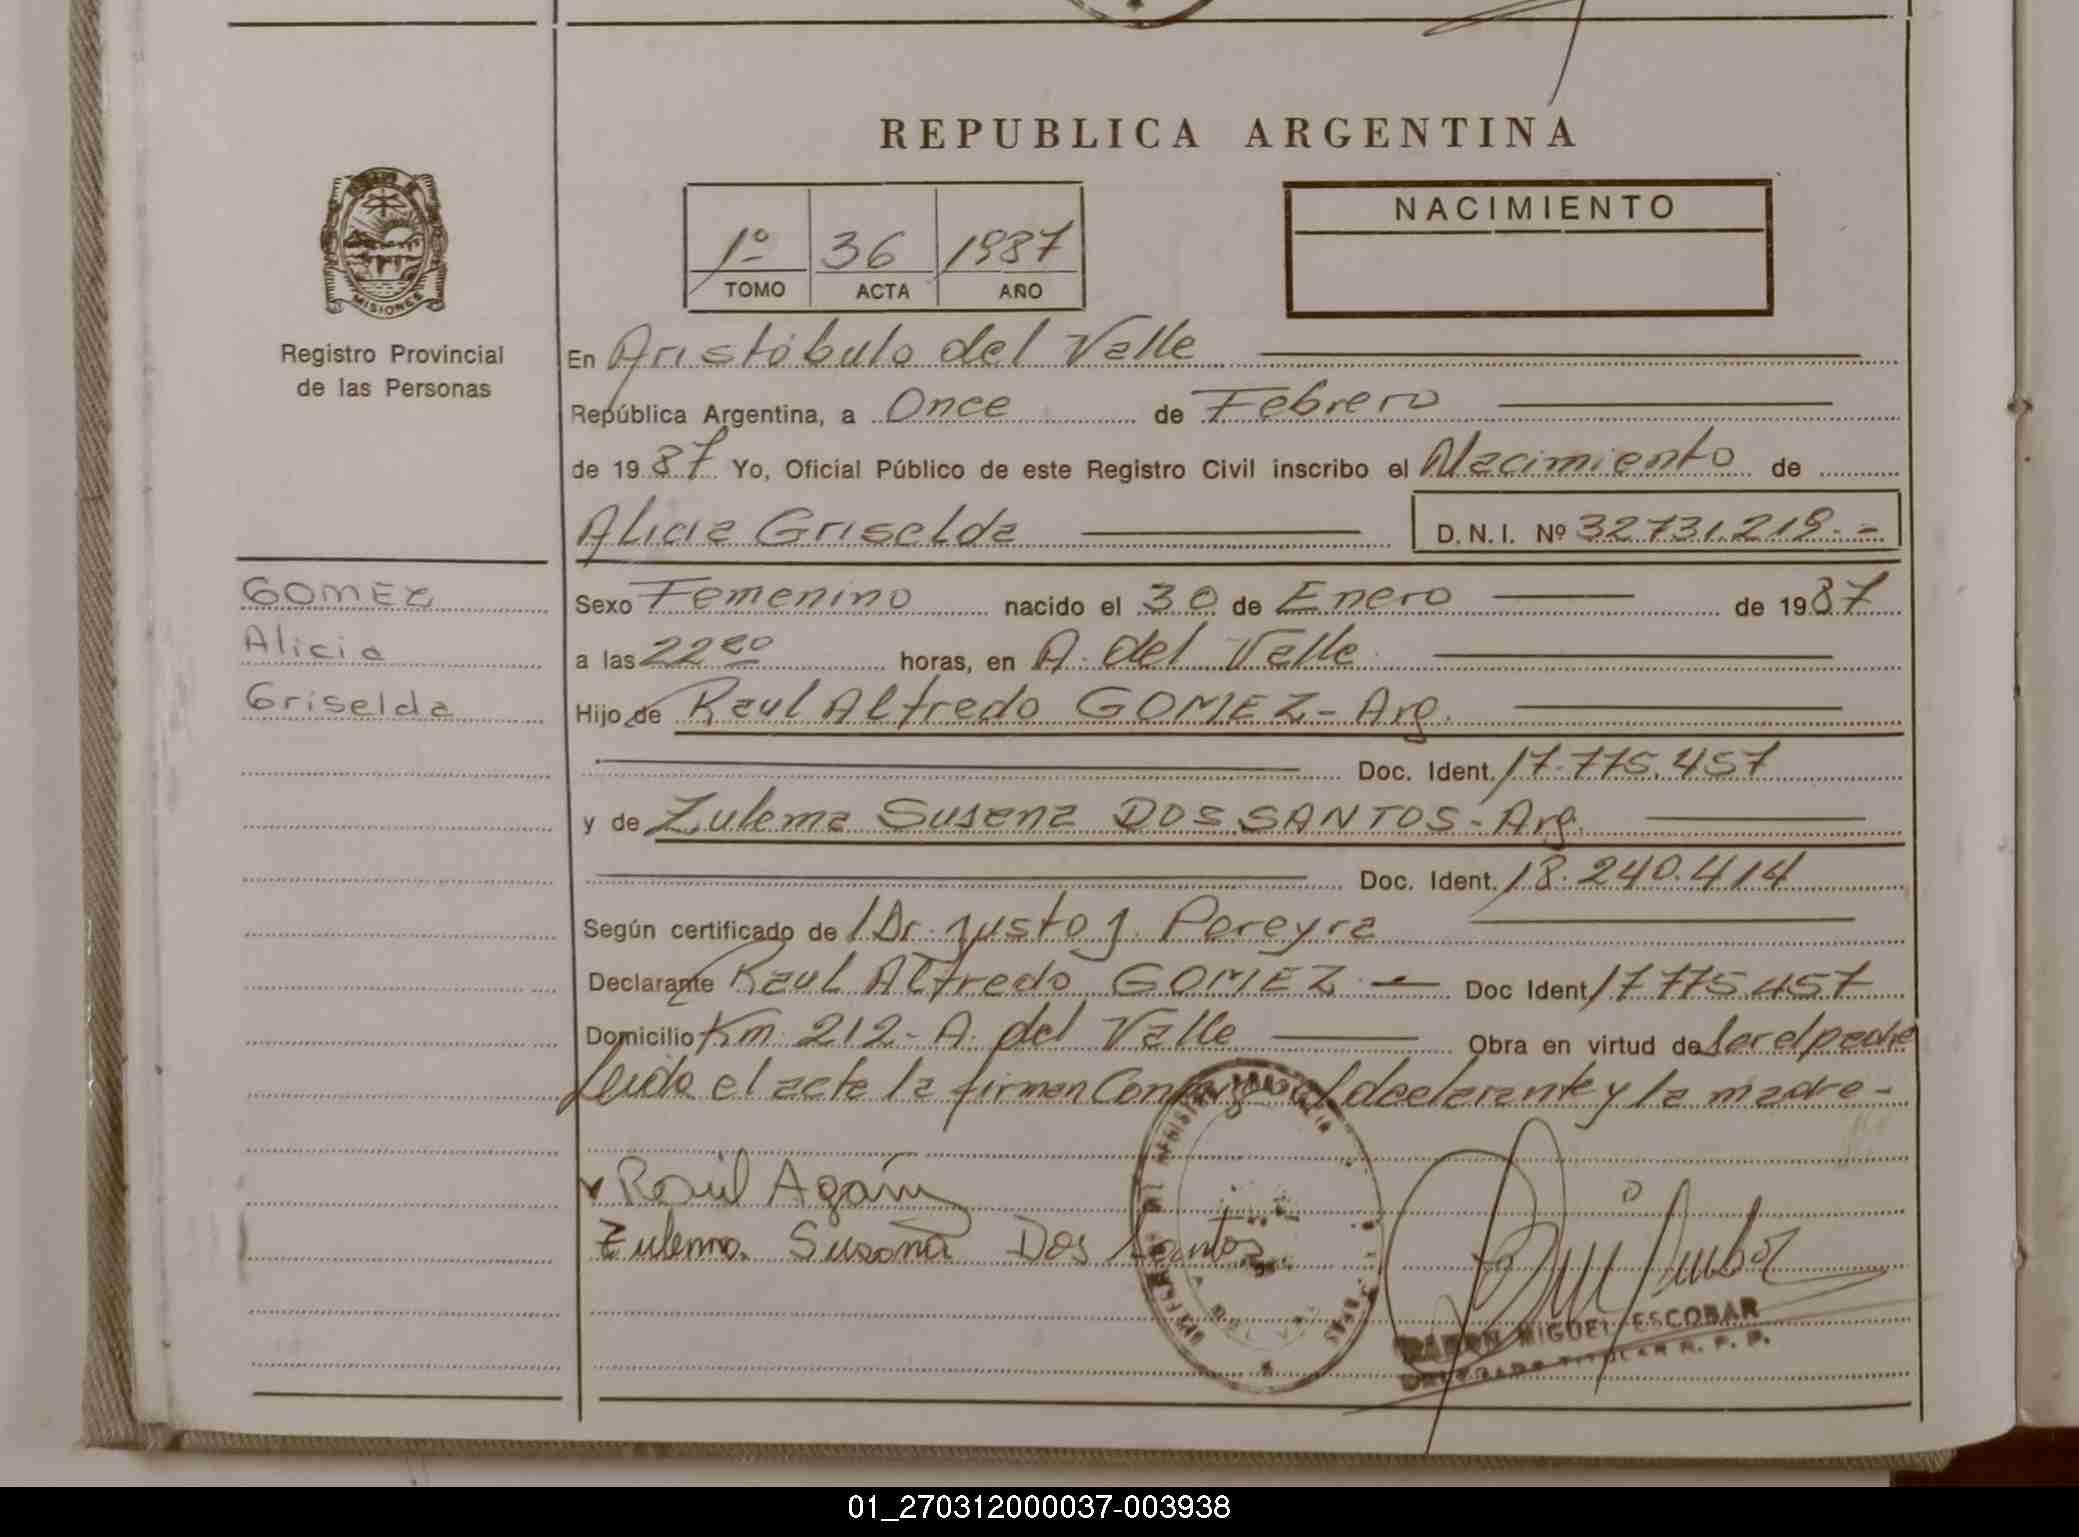 REPUBLICA ARGENTINA
1º 36 1987
TOMO ACTA AÑO
NACIMIENTO
MISIONES
Registro Provincial
de las Personas
En Aristóbulo del Valle
República Argentina, a Once de Febrero
de 1987 Yo, Oficial Público de este Registro Civil inscribo el Nacimiento de
Alicia Griselda D.N.I. Nº 32731.219.-
GOMEZ
Alicia
Griselda
Sexo Femenino nacido el 30 de Enero de 1987
a las 22 horas, en A. del Valle
Hijo de Raul Alfredo GOMEZ - Arg.
Doc. Ident. 17.775.457
y de Zulema Susana DOS SANTOS - Arg.
Doc. Ident. 18.240.414
Según certificado de Dr. Justo J. Pereyra
Declarante Raul Alfredo GOMEZ.- Doc Ident 17775.457
Domicilio Km 212 - A. del Valle Obra en virtud de ser el padre
Leida el acta la firman Conmigo el declarante y la madre -
Raúl
Zulema Susana Dos Santos
RAMON MIGUEL ESCOBAR
DELEGADO TITULAR R. P. P.
01_270312000037-003938